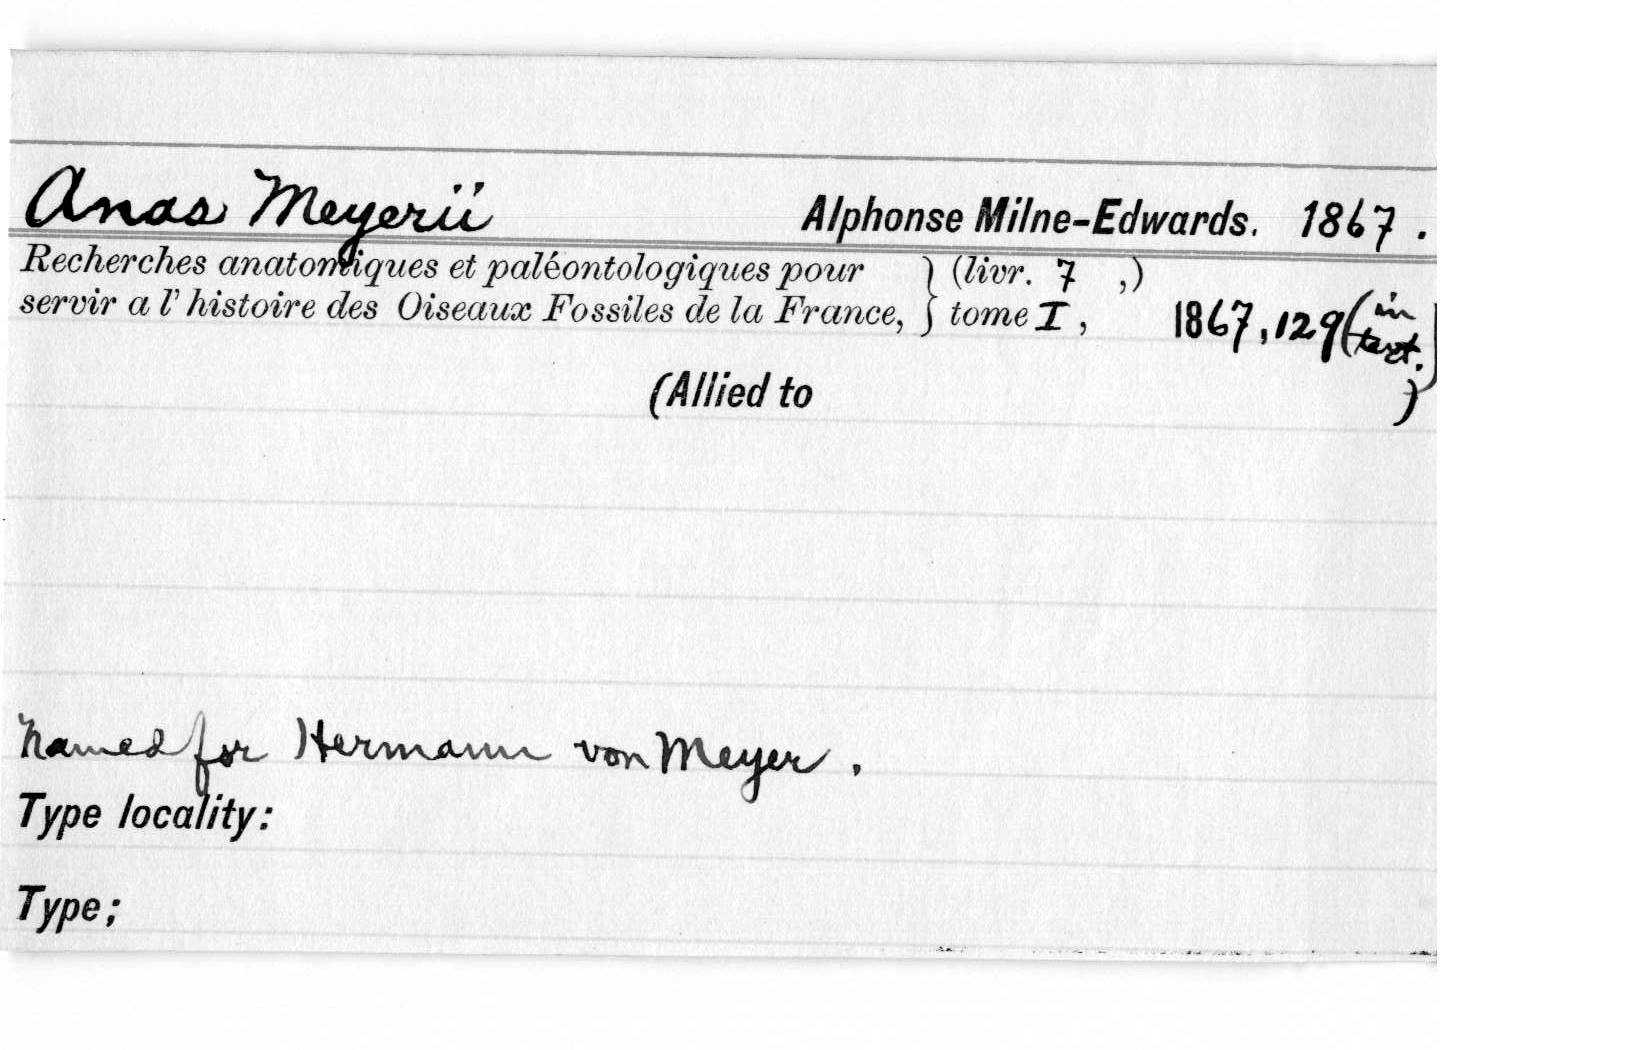 Anas Meyerii Alphonse Milne-Edwards. 1867.
Recherches anatomiques et paléontologiques pour } (livr. 7 ,)
servir a l'histoire des Oiseaux Fossiles de la France, } tome I, 1867, 129 (in text.)
(Allied to )
Named for Hermann von Meyer.
Type locality:
Type;